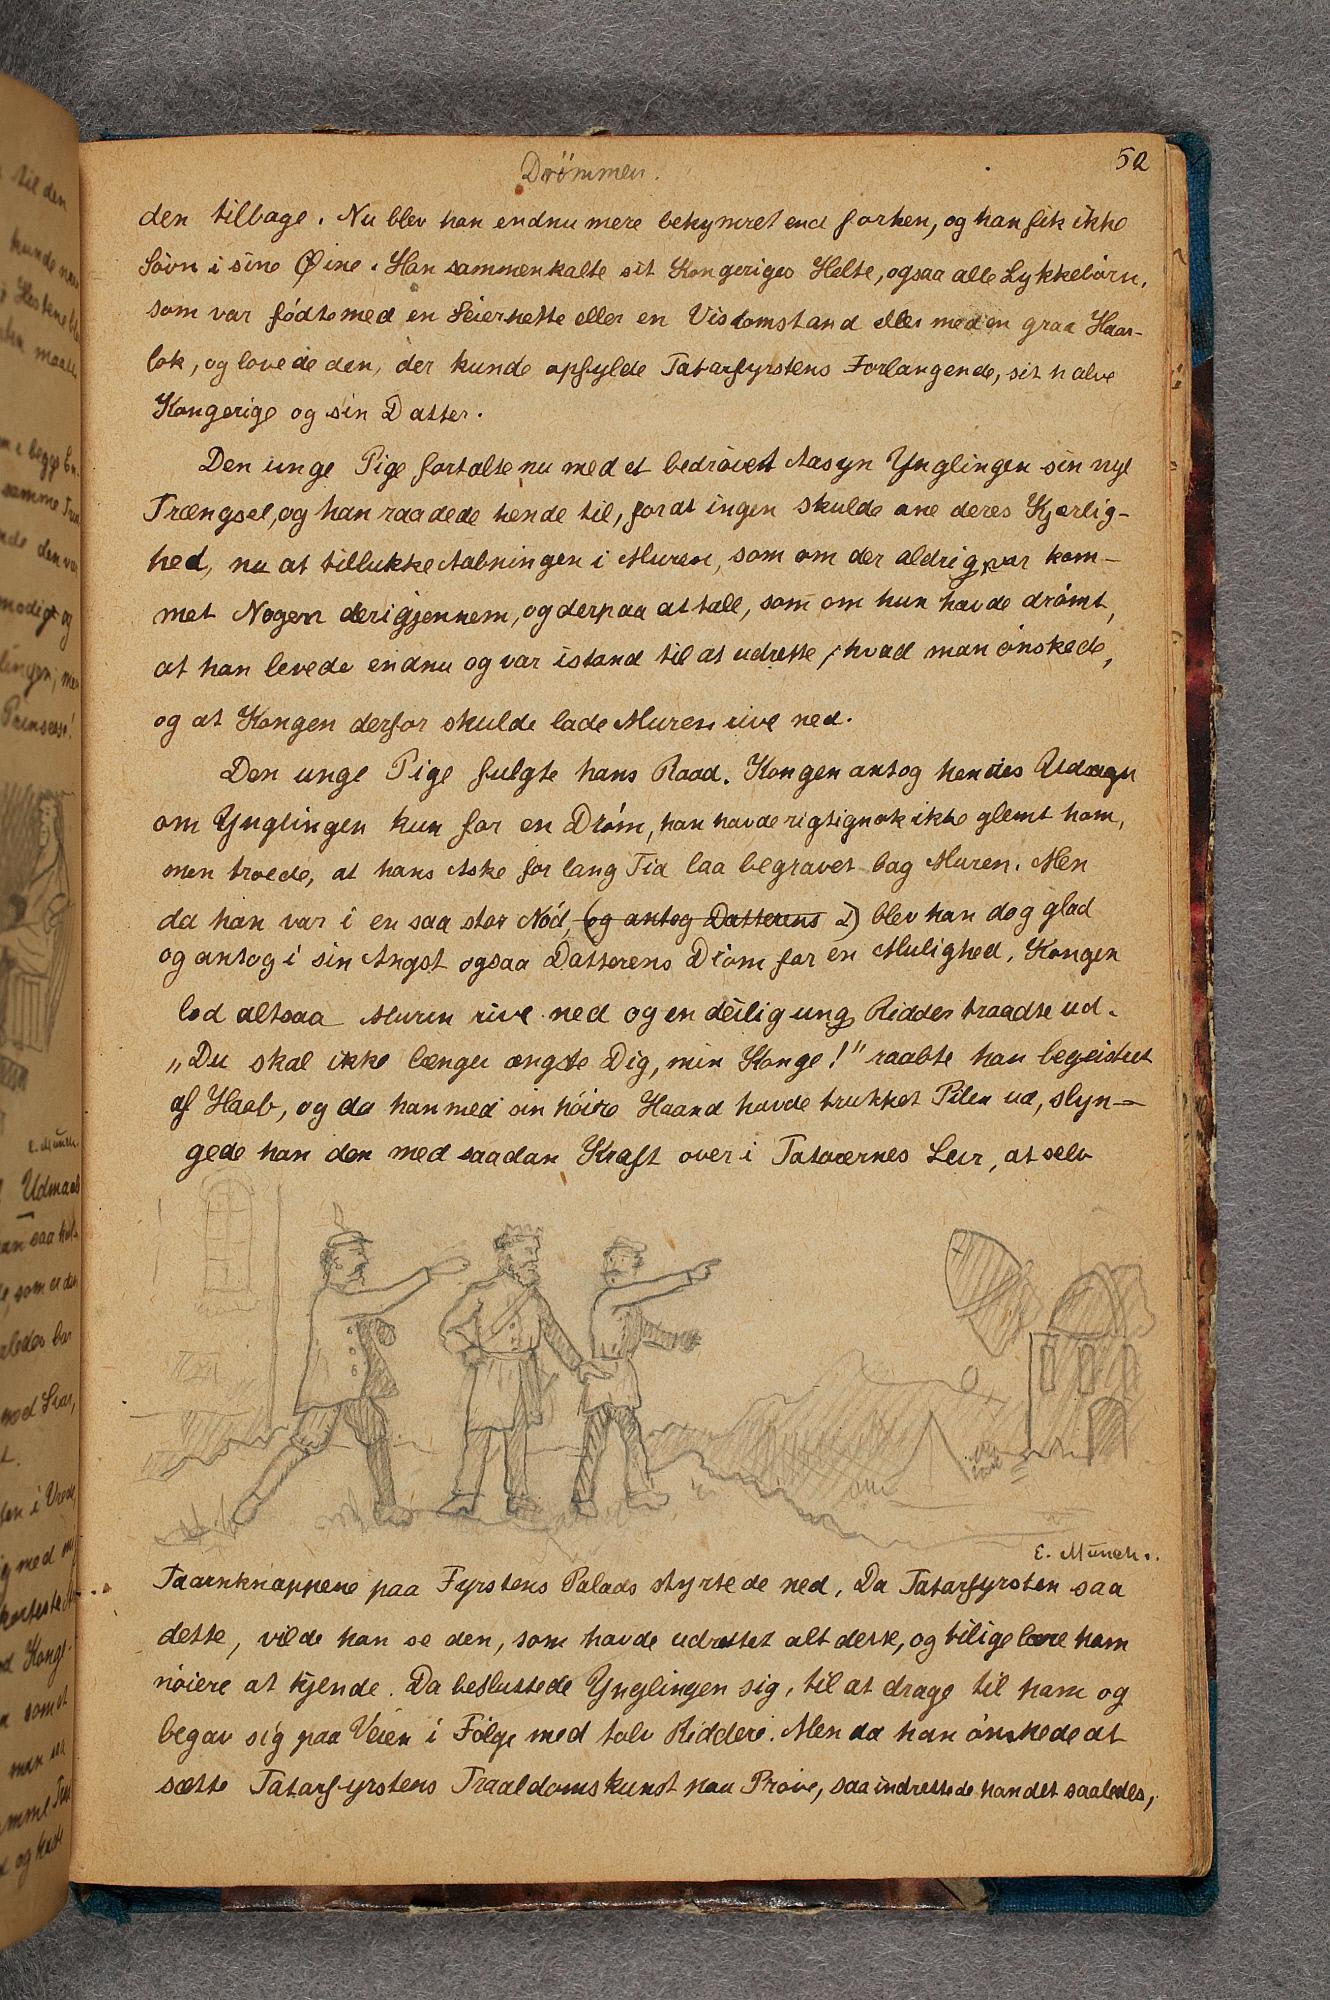 Drömmen.
52
den tilbage. Nu blev han endnu mere bekymret end forhen, og han fik ikke
Sövn i sine Øine. Han sammenkalte sit Kongeriges Helte, ogsaa alle Lykkebörn,
som var födte med en Seiershette eller en Visdomstand eller med en graa Haar-
lok, og lovede den, der kunde opfylde Tatarfyrstens Forlangende, sit halve
Kongerige og sin Datter.
Den unge Pige fortalte nu med et bedröiett Aasyn Ynglingen sin nye
Trængsel, og han raadede hende til, for at ingen skulde ane deres Kjærlig-
hed, nu at tillukke Aabningen i Muren, som om der aldrig var kom-
met Nogen derigjennem, og derpaa at tale, som om hun havde drömt,
at han levede endnu og var istand til at udrette, hvad man önskede,
og at Kongen derfor skulde lade Muren rive ned.
Den unge Pige fulgte hans Raad. Kongen antog hendes Udsagn
om Ynglingen kun for en Dröm, han havde rigtignok ikke glemt ham,
men troede, at hans Aske for lang Tid laa begravet bag Muren. Men
da han var i en saa stor Nöd, (og antog Datterens D) blev han dog glad
og antog i sin Angst ogsaa Datterens Dröm for en Mulighed. Kongen
lod altsaa Muren rive ned og en deilig ung Ridder traadte ud.
„Du skal ikke længer ængste Dig, min Konge!" raabte han begeistret
af Haab, og da han med sin höire Haand havde trukket Pilen ud, slyn-
gede han den med saadan Kraft over i Tatarernes Leir, at selv
E. Munch.
Taarnknappene paa Fyrstens Palads styrtede ned. Da Tatarfyrsten saa
dette, vilde han se den, som havde udrettet alt dette, og tillige lære ham
nöiere at kjende. Da besluttede Ynglingen sig, til at drage til ham og
begav sig paa Veien i Fölge med tolv Riddere. Men da han önskede at
sætte Tatarfyrstens Traaldomskunst paa Pröve, saa indrettede han det saaledes,
E. Munch.
Udmaal